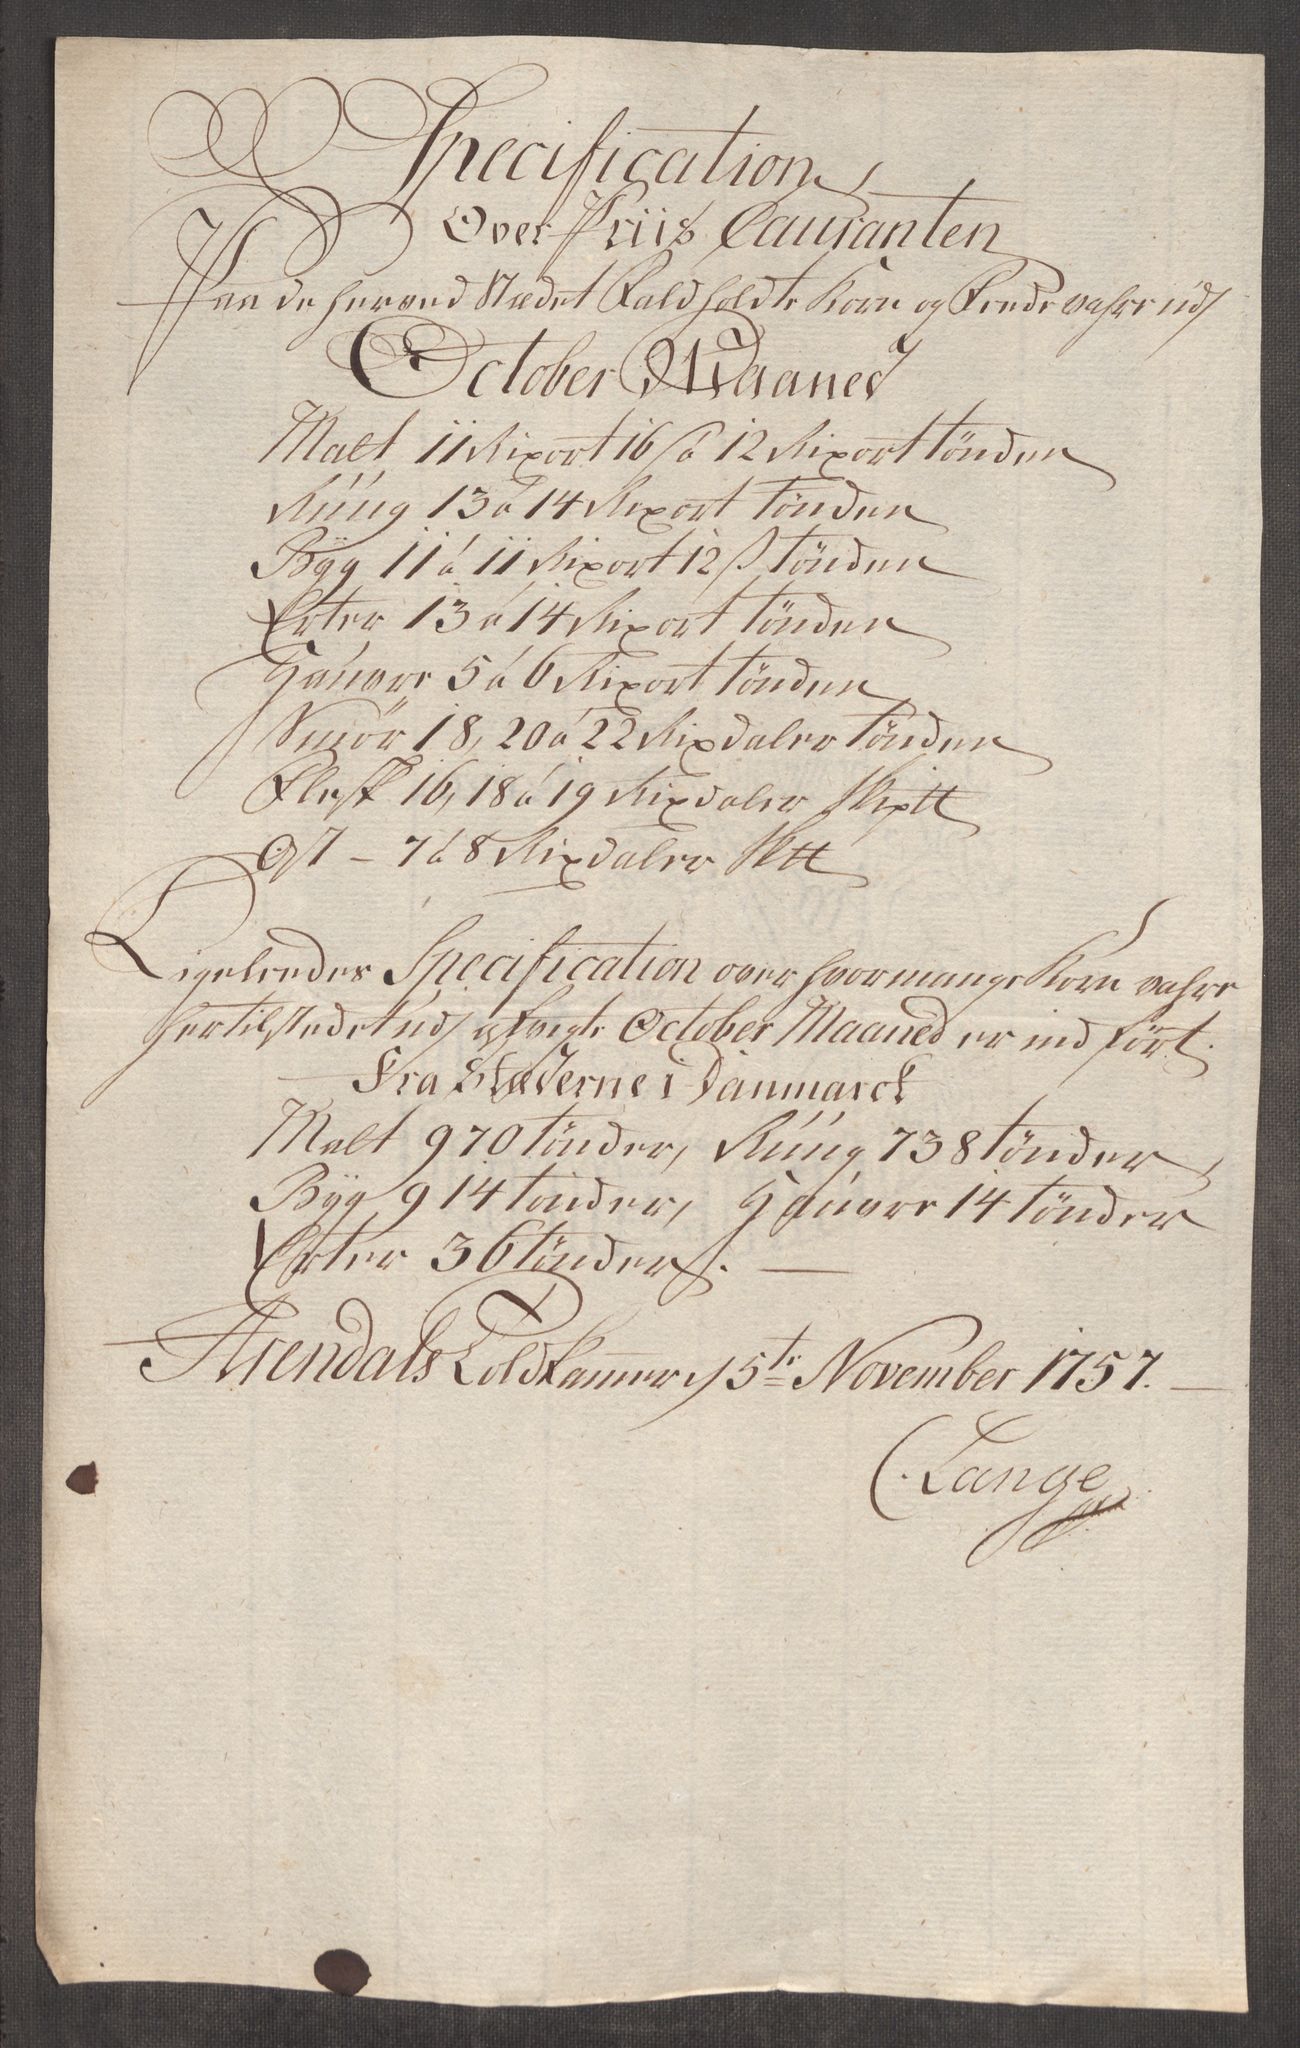 Specification
Over Priis Couranten
Paa de her ved Stædet Faldholdte Korn og Feede vahre udj
October Maaned
Malt 11 Rixort 16 s a 12 Rixort tönden
Rúúg 13 a 14 Rixort tönden
Byg 11 á 11 Rixort 12 s tönden
Erter 13 á 14 Rixort tönden
Haúvre 5 á 6 Rixort tönden
Smör 18, 20 á 22 Rixdaler tönden
Flesk 16, 18 á 19 Rixdaler Skp̃tt
Ost – 7 á 8 Rixdaler Sktt
Ligeleedes Specification over hvormange Korn vahre
her til stedet udj October Maaned er ind fört.
Fra Stæderne i Danmarck
Malt 970 tönder, Rúúg 738 tönder,
Byg 914 tönder, Haúvre 14 tönder
Erter 36 tönder. —
Arendals Toldkammer, 5te November 1757. —
C. Lange